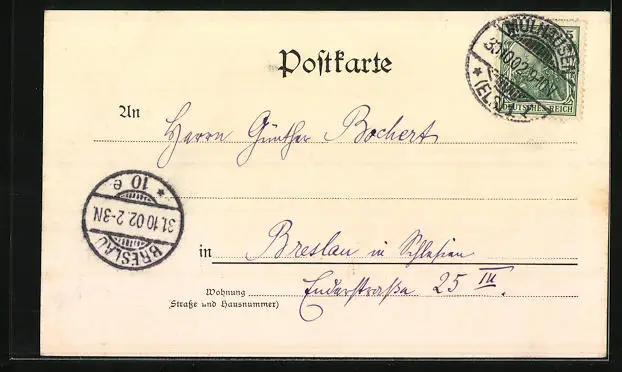 Postkarte
MÜLHAUSEN
30.10.02.9-10V.
* (ELS.) 1
5
DEUTSCHES REICH
An
Herrn Günther Bochert
* 10 e
31.10.02.2-3N
BRESLAU
in Breslau in Schlesien
Wohnung Enderstraße 25 III.
(Straße und Hausnummer)